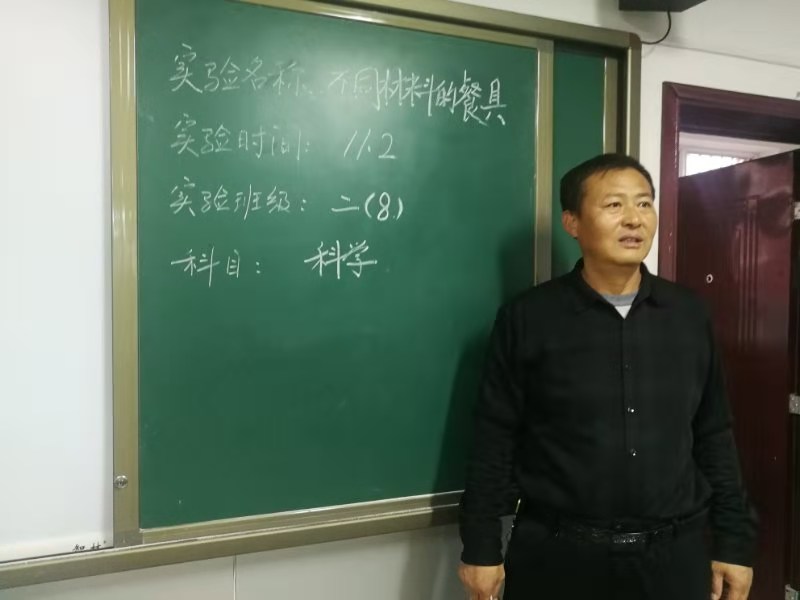 实验名称：不同材料的餐具
实验时间：11.2
实验班级：二(8)
科目：科学